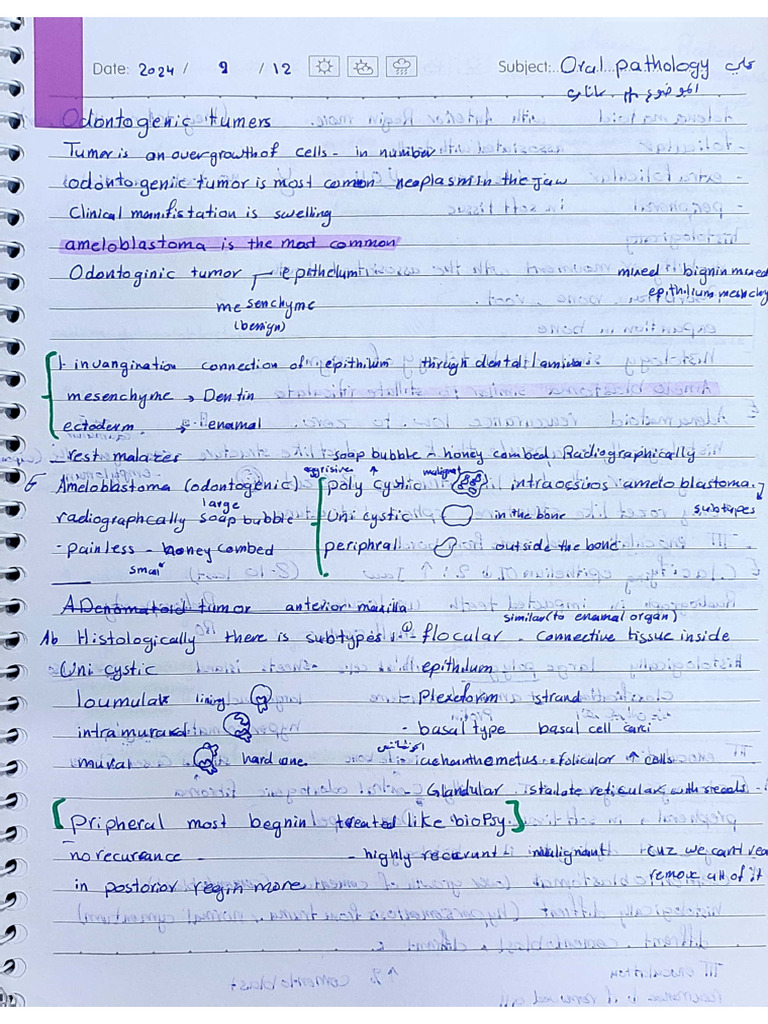 Date: 2024 / 9 / 12 Subject: Oral pathology
Odontogenic tumers
Tumor is an overgrowth of cells - in number
odontogenic tumor is most common neoplasm in the Jaw
Clinical manifistation is swelling
ameloblastoma is the most common
Odontoginic tumor epithelum mixed bignin mixed
mesenchyme epithilium meschy
(benign)
1- invangination connection of epithilum through dental lamina.
mesenchyme → Dentin
ectoderm → enamal
- rest malazes soap bubble - honey combed Radiographically
aggrisive ↑ malignat
Ameloblastoma (odontogenic) poly cystic intraocsiros ameloblastoma.
large
radiographcally soap bubble Uni cystic in the bone subtypes
- painless - honey combed periphral outside the bone
small
ADenomatoid tumor anterior maxilla
similar (to enamal organ)
Ab Histologically there is subtypes :- ① - flocular - Connective tissue inside
Uni cystic epithilum
loumular lining - Plexeform strand
intramural - basal type basal cell carci
mural hard one acanthometus = folicular ↑ cells
- Glandular . stalate reticular with
[Pripheral most begnin treated like biopsy.]
no recurance - - highly recurant malignant cuz we cant
in posterior regin more remove all of it